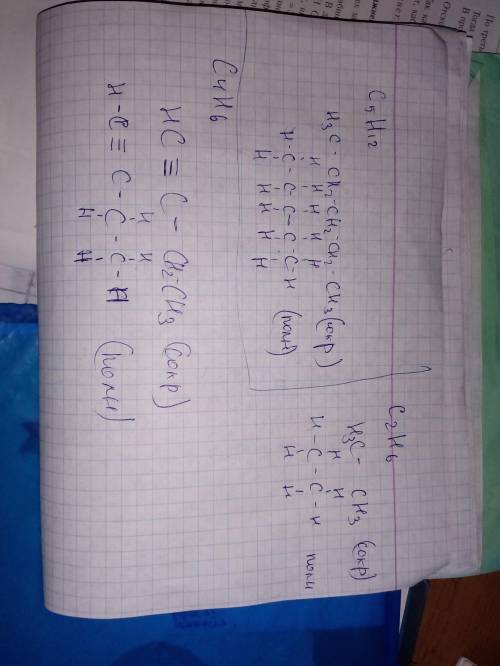 C5H12
H3C - CH2 - CH2 - CH2 - CH3 (сокр)
H H H H H
H - C - C - C - C - C - H (полн)
H H H H H
C2H6
H3C - CH3 (сокр)
H H
H - C - C - H полн
H H
C4H6
HC ≡ C - CH2 - CH3 (сокр)
H H
H - C ≡ C - C - C - H (полн)
H H